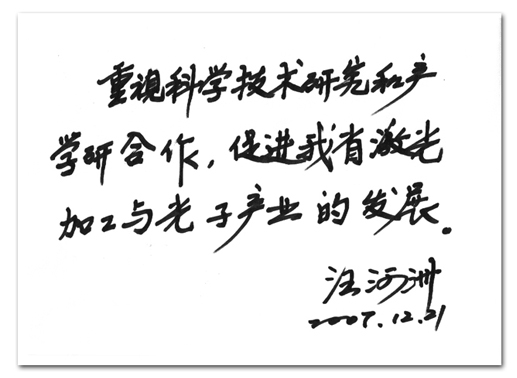 重视科学技术研究和产
学研合作,促进我省激光
加工与光子产业的发展。
汪河洲
2007.12.21